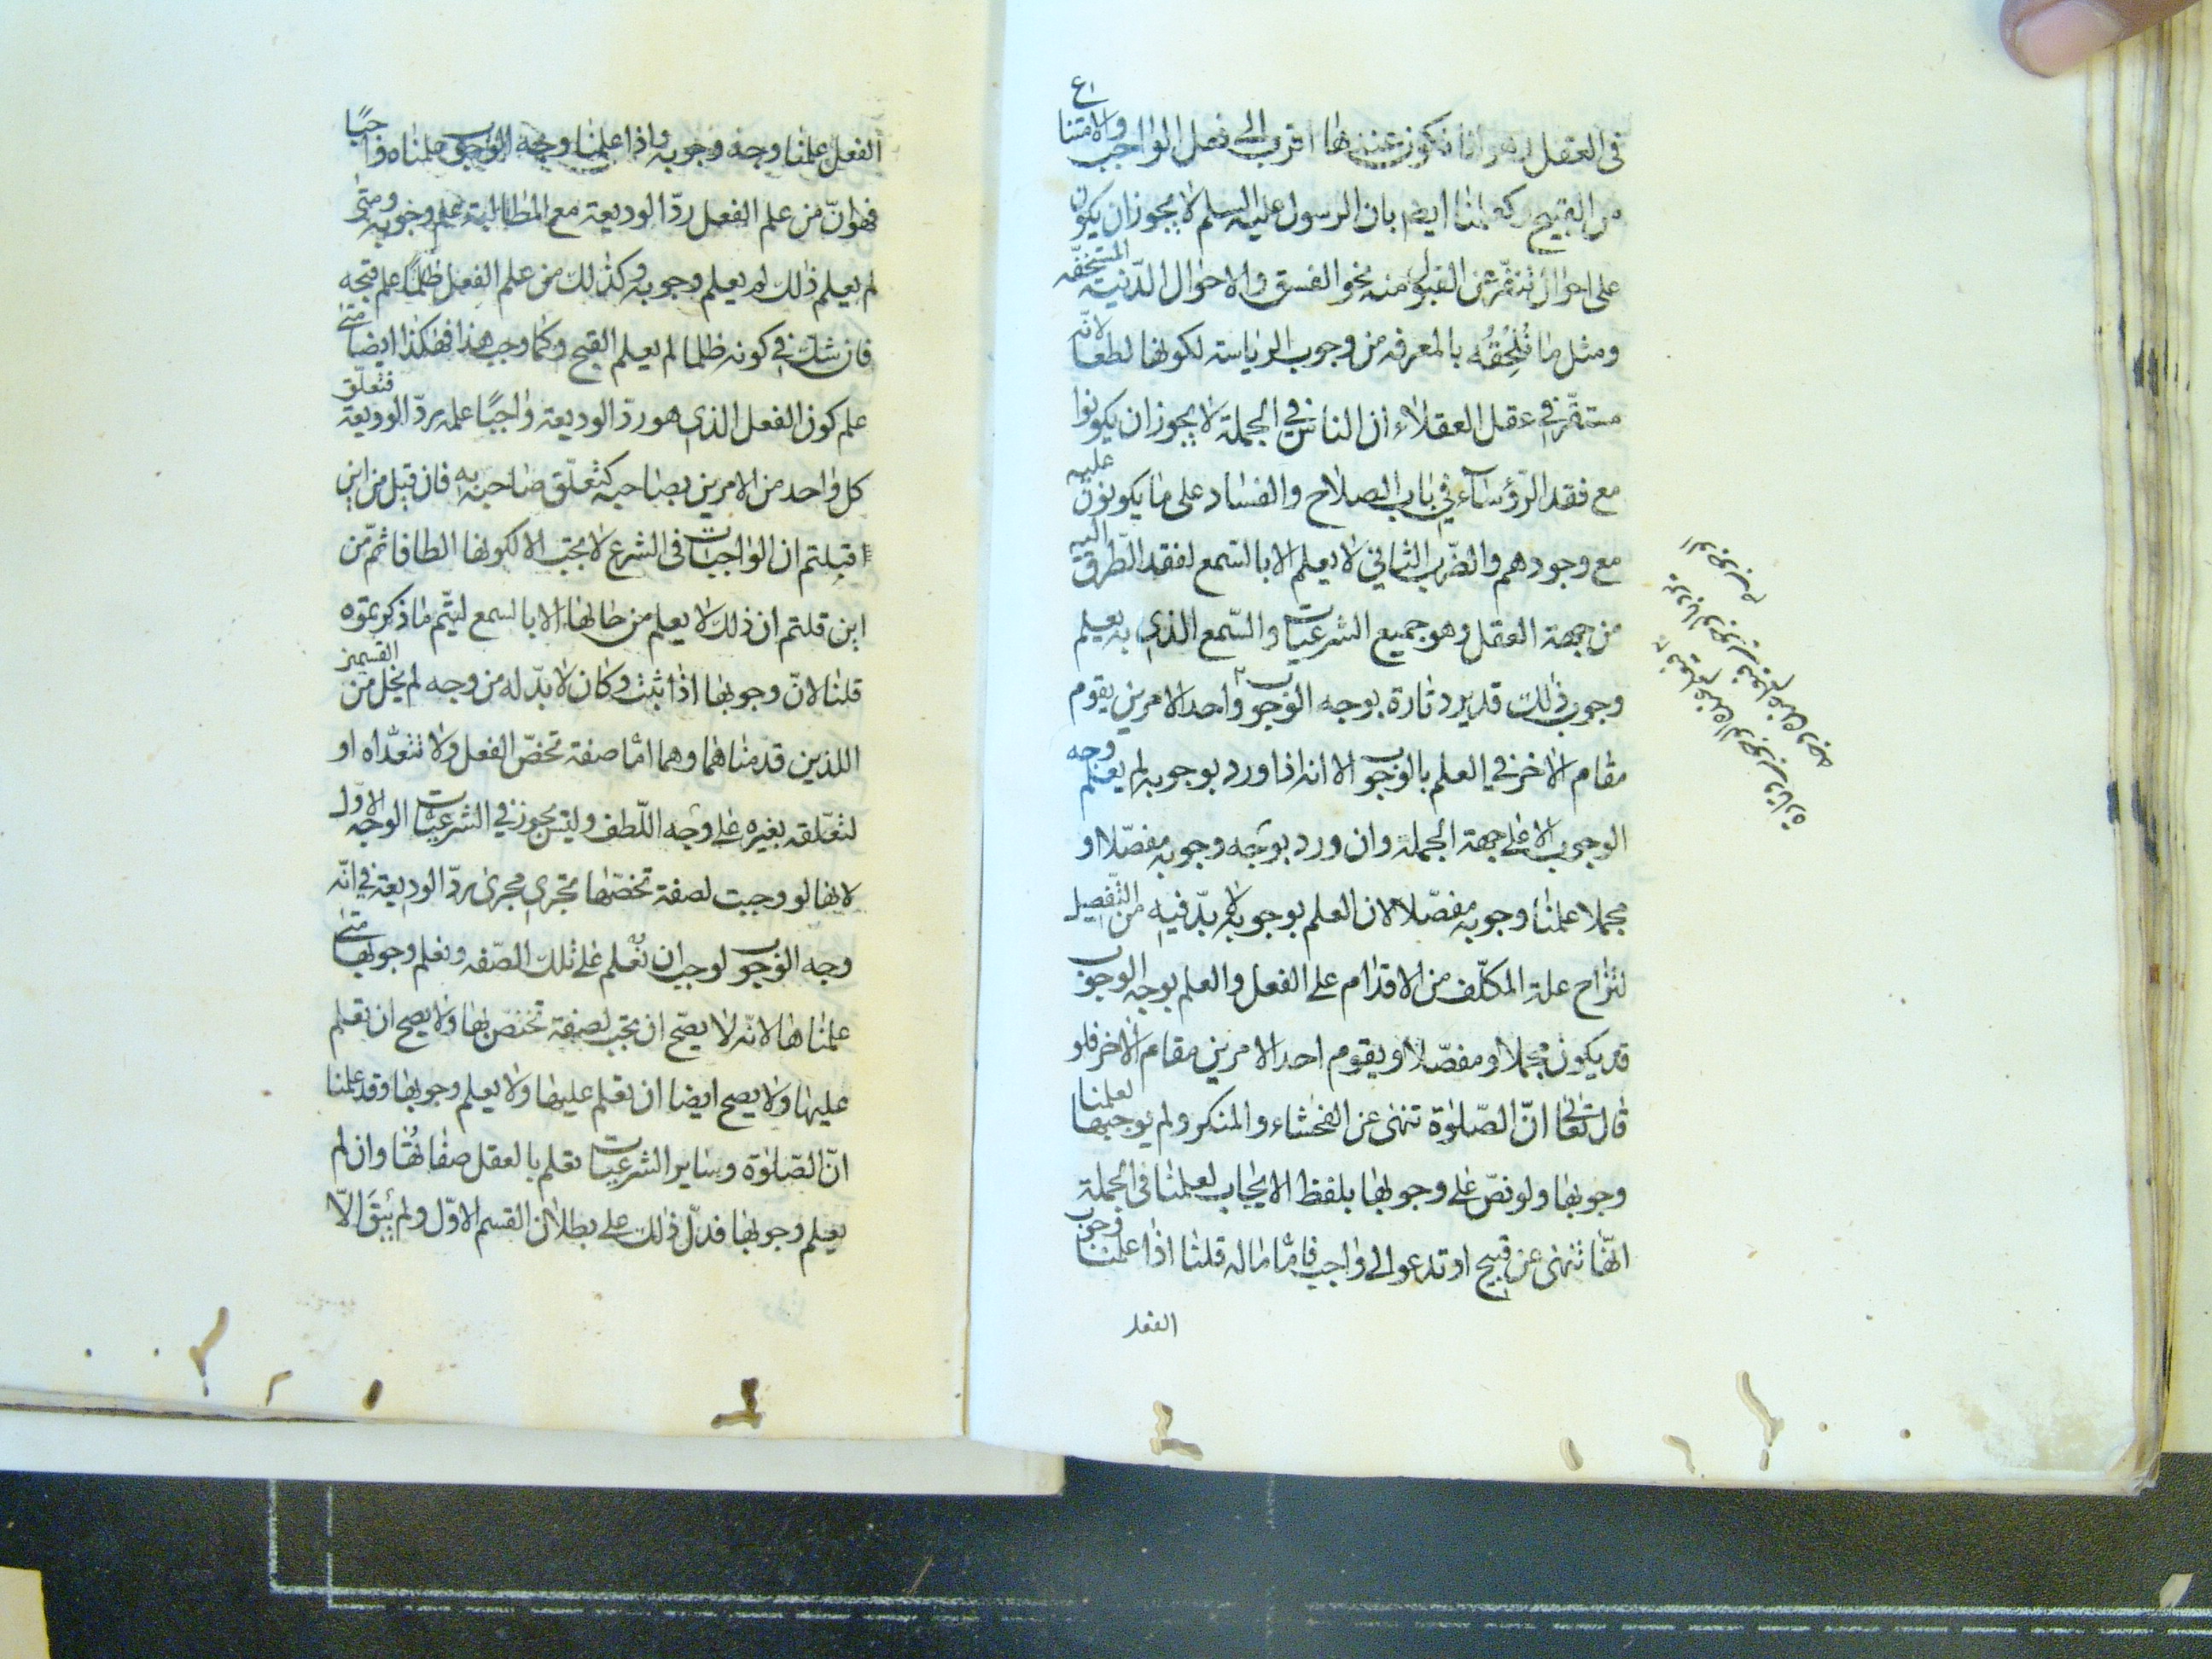 في العقل وهو انا نكون عندها اقرب الى فعل الواجب والامتناع
من القبيح وكعلمنا ايضا بان الرسول عليه السلم لا يجوز ان يكون
على احوال تنفّر عن القبول منه نحو الفسق والاحوال الدّنيّة المستخفّه
ومثل ما نُلحِقُه بالمعرفه من وجوب الرياسة لكونها لطفا لانّه
مستقرّ في عقل العقلاء أن الناس في الجملة لا يجوز ان يكونوا
مع فقد الرّؤساء في باب الصلاح والفساد على ما يكونون عليه
مع وجودهم والضّرب الثاني لا يعلم الا بالسّمع لفقد الطّرق اليه
من جهة العقل وهو جميع الشرعيّات والسّمع الذي به يعلم
وجوب ذلك قد يرد تارة بوجه الوجوب واحد الامرين يقوم
مقام الاخر في العلم بالوجوب الا انه اذا ورد بوجوبه لم يعلم وجه
الوجوب الا على جهة الجملة وان ورد بوجه وجوبه مفصّلا او
مجملا علمنا وجوبه مفصّلا لان العلم بوجوبه لا بدّ فيه من التّفصيل
لتزاح علة المكلّف من الاقدام على الفعل والعلم بوجه الوجوب
قد يكون مجملا او مفصّلا او يقوم احد الامرين مقام الاخر فلو
قال تعالى انّ الصّلوة تنهى عن الفحشاء والمنكر ولم يوجبها لعلمنا
وجوبها ولو نصّ على وجوبها بلفظ الايجاب لعلمنا في الجملة
انّها تنهى عن قبيح او تدعو الى واجب فامّا ماله قلنا اذا علمنا وجوب
الفعل
الفعل علمنا وجه وجوبه واذا علمنا وجه الوجوب علمناه واجبًا
فهو انّ من علم الفعل ردّ الوديعة مع المطالبة علم وجوبه ومتى
لم يعلم ذلك لم يعلم وجوبه وكذلك من علم الفعل ظلمًا علم قبحه
فان شكّ في كونه ظلما لم يعلم القبح وكما وجب هذا فهكذا ايضا متى
علم كون الفعل الذي هو ردّ الوديعة واجبًا علمه بردّ الوديعة فتعلّق
كل واحد من الامرين بصاحبه كتعلّق صاحبه به فان قيل من اين
قلتم ان الواجبات في الشرع لا تجب الا لكونها الطافا ثمّ من
اين قلتم ان ذلك لا يعلم من حالها الا بالسمع ليتّم ما ذكرتموه
قلنا لانّ وجوبها اذا ثبت وكان لا بدّ له من وجه لم يخل من القسمين
اللذين قدّمناهما وهما امّا صفة تخصّ الفعل ولا تتعدّاه او
لتعّلقه بغيره على وجه اللّطف وليس يجوز في الشرعيّات الوجه الاوّل
لانها لو وجبت لصفة تخصّها تجري مجرى ردّ الوديعة في انّه
وجه الوجوب لوجب ان نعلم على تلك الصّفه ونعلم وجوبها متى
علمناها لانّه لا يصّح ان تجب لصفة تختصّ بها ولا يصح ان نعلم
عليها ولا يصح ايضا ان نعلم عليها ولا يعلم وجوبها وقد علمنا
انّ الصّلوة وساير الشرعيّات نعلم بالعقل صفاتها وان لم
يعلم وجوبها فدلّ ذلك على بطلان القسم الاوّل ولم يبقَ الّا